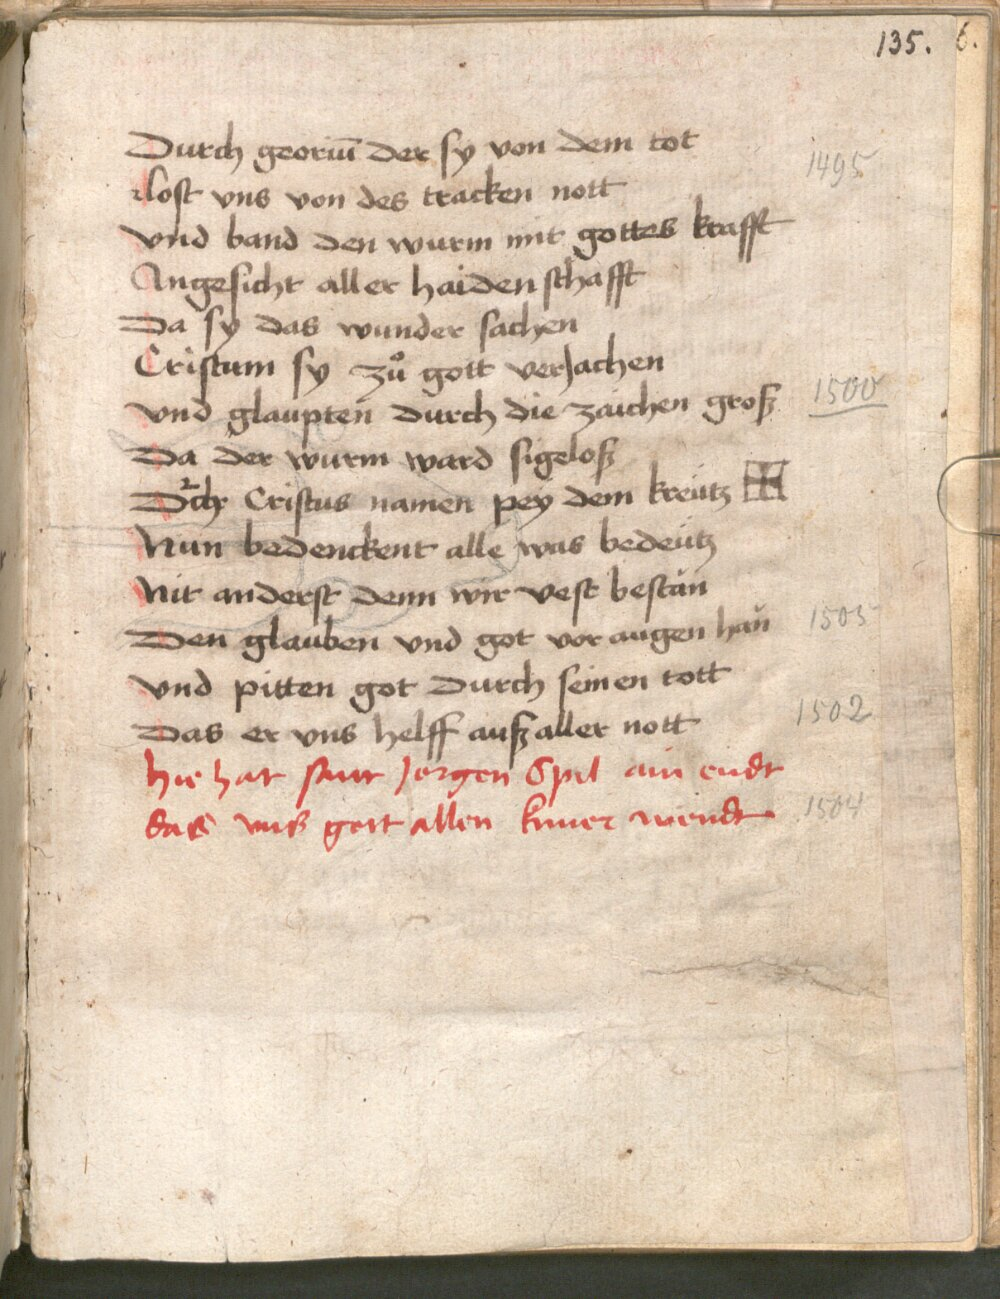 135. 6.
Durch georiū der sy von dem tot
1495
rlost vns von des tracken nott
vnd band den wurm mit gottes krafft
Angesicht aller haidenschafft
Da sy das wunder sachen
Cristum sy zů gott verjachen
vnd glaupten durch die zaichen groß
1500
Da der wurm ward sigeloß
Dᵘch Cristus namen pey dem kreütz
Nun bedenckent alle was bedeütz
Nit anderst denn wir vest bestän
Den glauben vnd got vor augen han
1505
vnd pitten got durch seinen tott
Das er vns helff auß aller nott
1502
hie hat sant Jorgen Spil ain endt
das vnß gott allen kumer wendt
1504